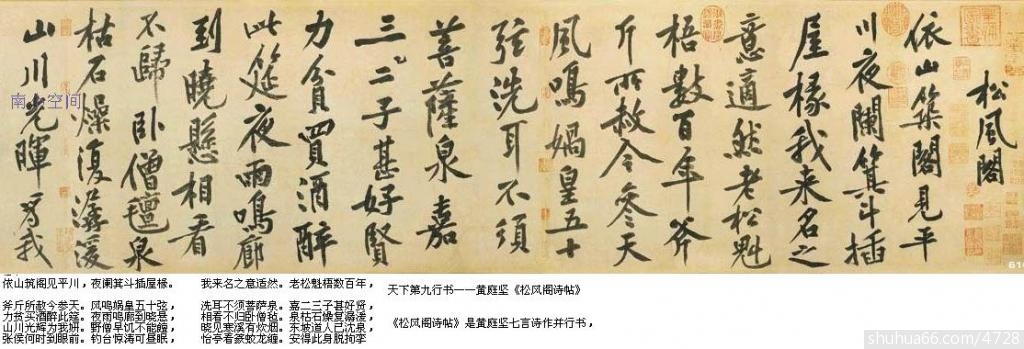 松風閣
依山築閣見平
川夜闌箕斗插
屋椽我来名之
意適然老松魁
梧數百年斧
斤所赦今參天
風鳴媧皇五十
弦洗耳不須
菩薩泉嘉
三二子甚好賢
力貧買酒醉
此筵夜雨鳴廊
到曉懸相看
不歸卧僧氊泉
枯石燥復潺湲
山川光暉為我
南 空间
依山筑阁见平川,夜阑箕斗插屋椽。
斧斤所赦今参天。风鸣娲皇五十弦,
力贫买酒醉此筵。夜雨鸣廊到晓悬,
山川光辉为我妍。野僧早饥不能饘,
张侯何时到眼前。钓台惊涛可昼眠,
我来名之意适然。老松魁梧数百年,
洗耳不须菩萨泉。嘉二三子甚好贤,
相看不归卧僧毡。泉枯石燥复潺湲,
晓见寒溪有炊烟。东坡道人已沈泉,
怡亭看篆蛟龙缠。安得此身脱拘挛
天下第九行书——黄庭坚《松风阁诗帖》
《松风阁诗帖》是黄庭坚七言诗作并行书,
shuhua66.com/4728